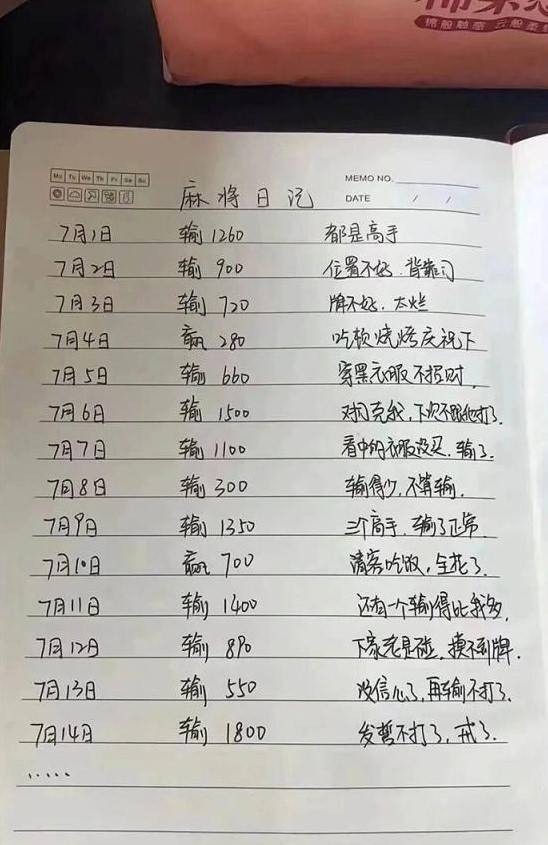 棉般触感 云般柔
Mo Tu We Th Fr Sa Su
MEMO NO.
麻将日记
DATE / /
7月1日 输1260 都是高手
7月2日 输 900 位置不好.背靠门
7月3日 输 720 牌不好.太烂
7月4日 赢 280 吃顿烧烤庆祝下
7月5日 输 660 穿黑衣服不招财.
7月6日 输 1500 对门克我,下次不跟他打了.
7月7日 输 1100 看中的衣服没买.输了.
7月8日 输 300 输得少,不算输.
7月9日 输 1350 三个高手.输了正常.
7月10日 赢 700 请客吃饭,全花了.
7月11日 输 1400 还有一个输得比我多.
7月12日 输 890 下家老是碰,摸不到牌.
7月13日 输 550 没信心了,再输不打了.
7月14日 输 1800 发誓不打了,戒了.
.....